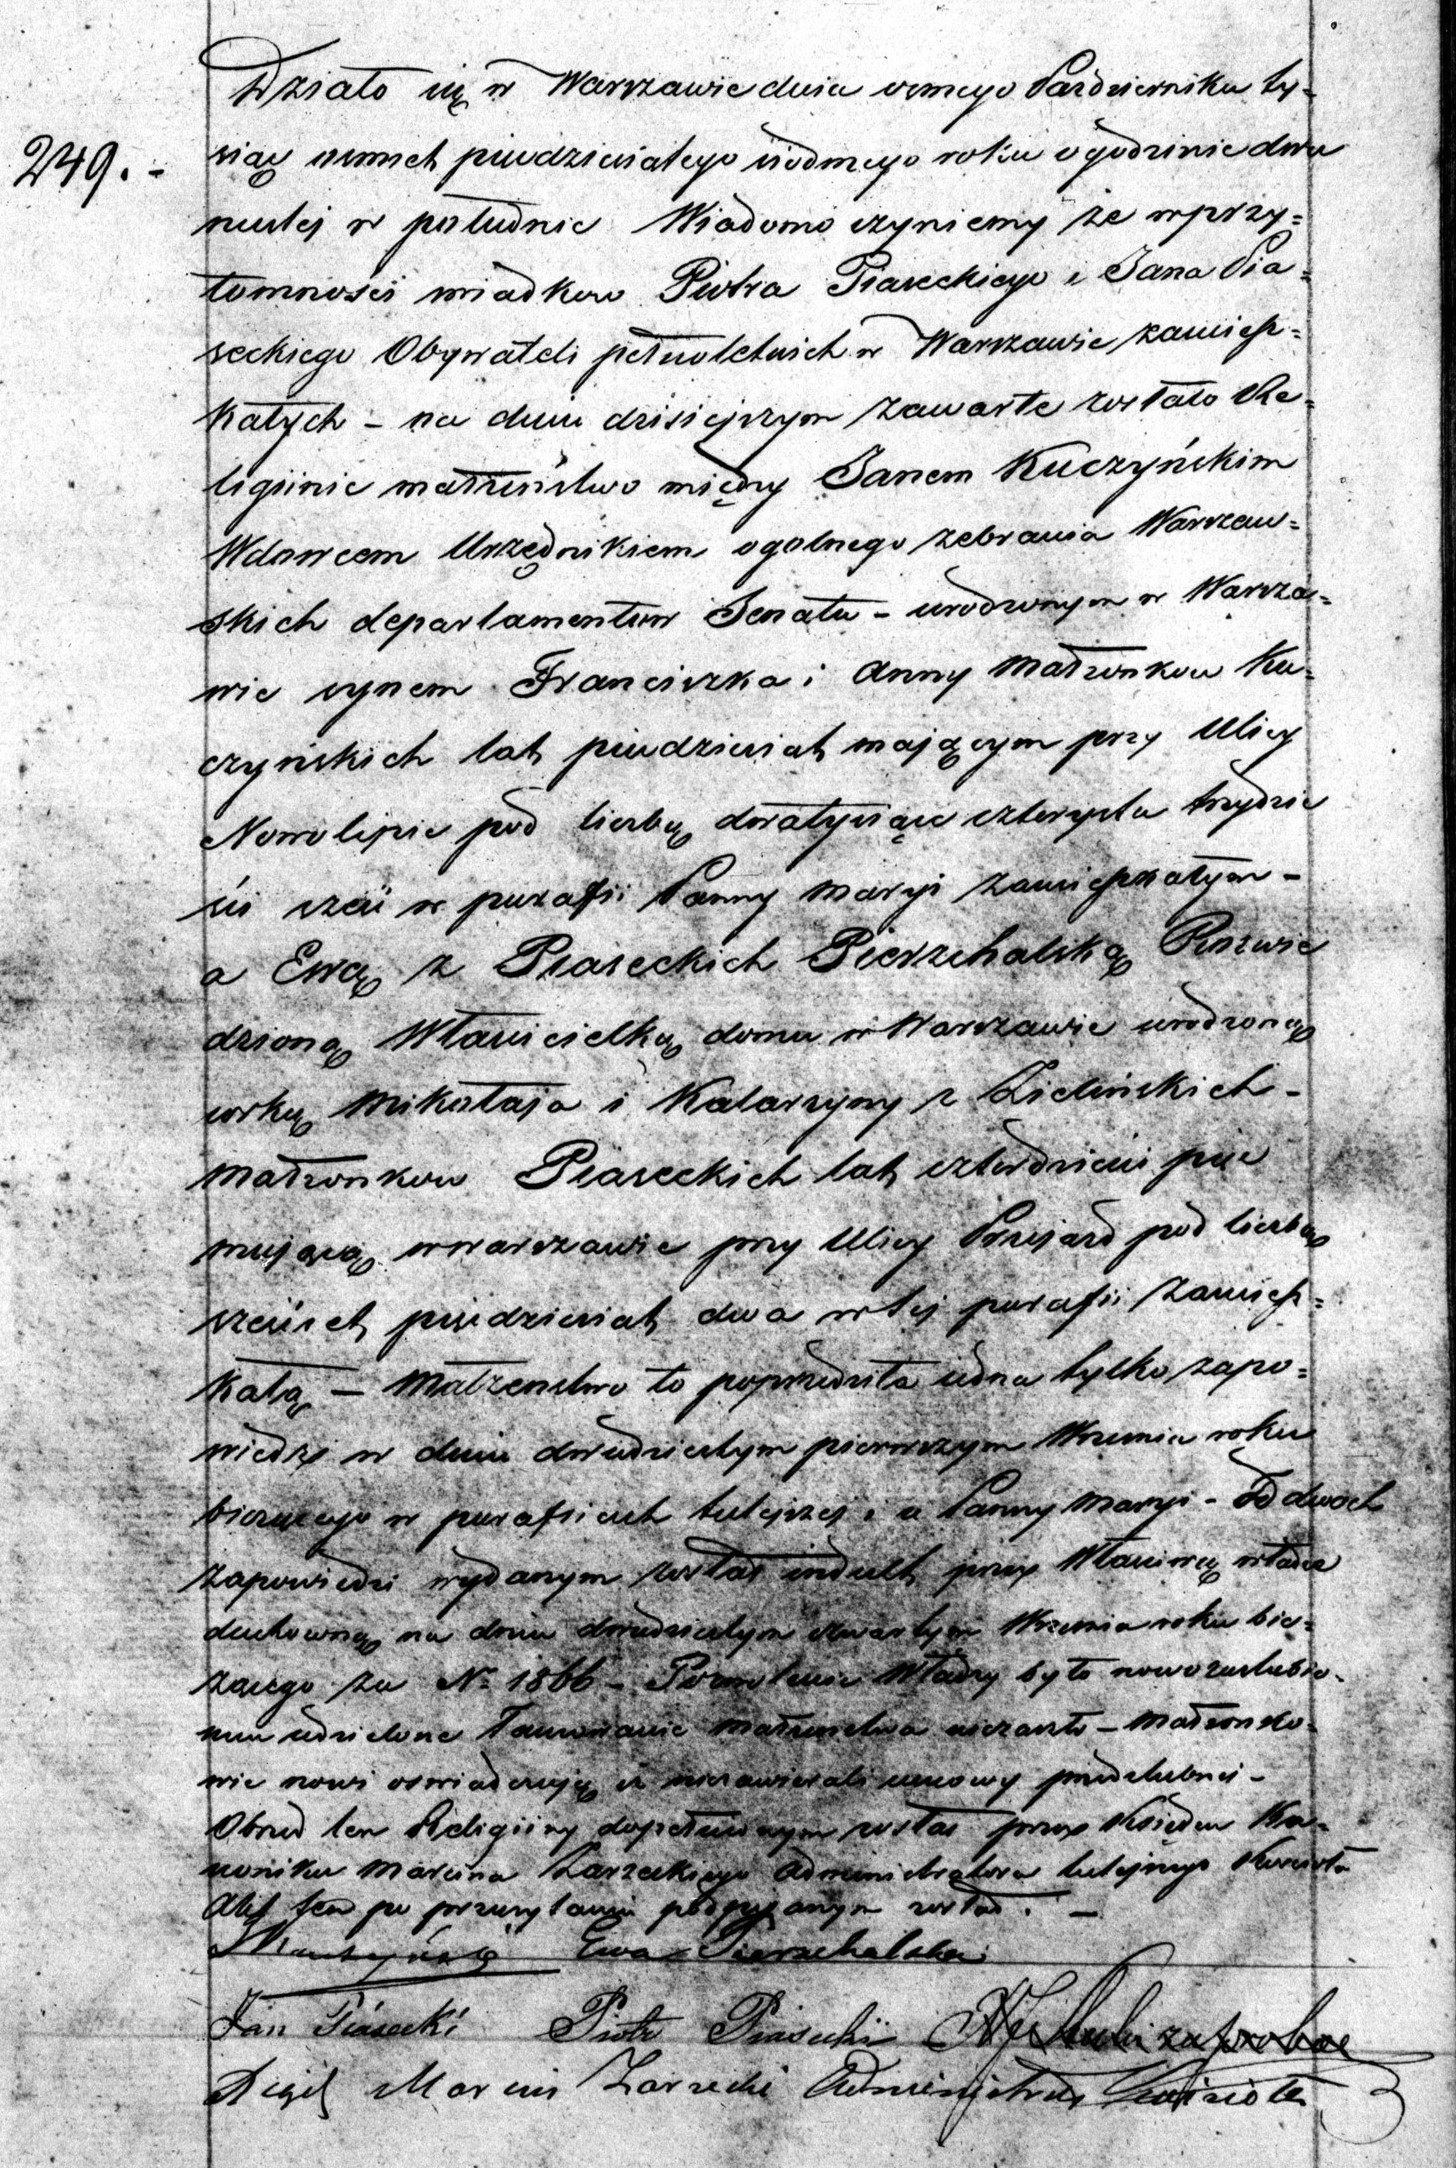 Działo się w Warszawie dnia osmego Października ty=
249. -
siąc osmset piędziesiątego siodmego roku o godzinie dwu
nastej w południe Wiadomo czyniemy że w przy=
tomności swiadkow Piotra Piaseckiego i Jana Pia=
seckiego Obywateli pełnoletnich w Warszawie zamiesz=
kałych - na dniu dzisiejszym zawarte zostało Re=
ligiinie małżeństwo między Janem Kuczyńskim
Wdowcem Urzędnikiem ogolnego zebrania Warszaw=
skich departamentow Senatu - urodzonym w Warsza=
wie synem Franciszka i Anny Małżonkow Ku=
czyńskich lat piędziesiąt mającym przy Ulicy
Nowolipie pod liczbą dwatysiące czterysta trzydzie
ści sześć w parafii Panny Maryi zamieszkałym -
a Ewą z Piaseckich Pierzchalską Rozwie
dzioną Właścicielką domu w Warszawie urodzoną
corką Mikołaja i Katarzyny z Zielińskich -
Małżonkow Piaseckich lat czterdzieści pięć
mającą w Warszawie przy Ulicy Przejazd pod liczbą
sześćset piędziesiąt dwa w tej parafii zamiesz=
kałą - Małżenstwo to poprzedziła jedna tylko zapo=
wiedź w dniu dwudziestym pierwszym Wrzesnia roku
bieżącego w parafiach tutejszej i u Panny Maryi - Od dwoch
zapowiedzi wydanym został indult przez Właściwą władzę
duchowną na dniu dwudziestym czwartym Wrzesnia roku bie=
żącego za No 1866 - Pozwolenie Władzy było nowozaslubio=
nemu udzielone Tamowanie małżenstwa niezaszło - Małżonko=
wie nowi oswiadczają iż niezawierali umowy przedslubnej -
Obrzęd ten Religiiny dopełnionym został przez Księdza Ka=
nonika Marcina Zarzeckiego Administratora tutejszego Koscioła
Akt ten po przeczytaniu podpisanym został. -
JKuczyński Ewa Pierzchalska
Jan Piasecki Piotr Piasecki
X. Marcin Zarzecki Administrator Koscioła